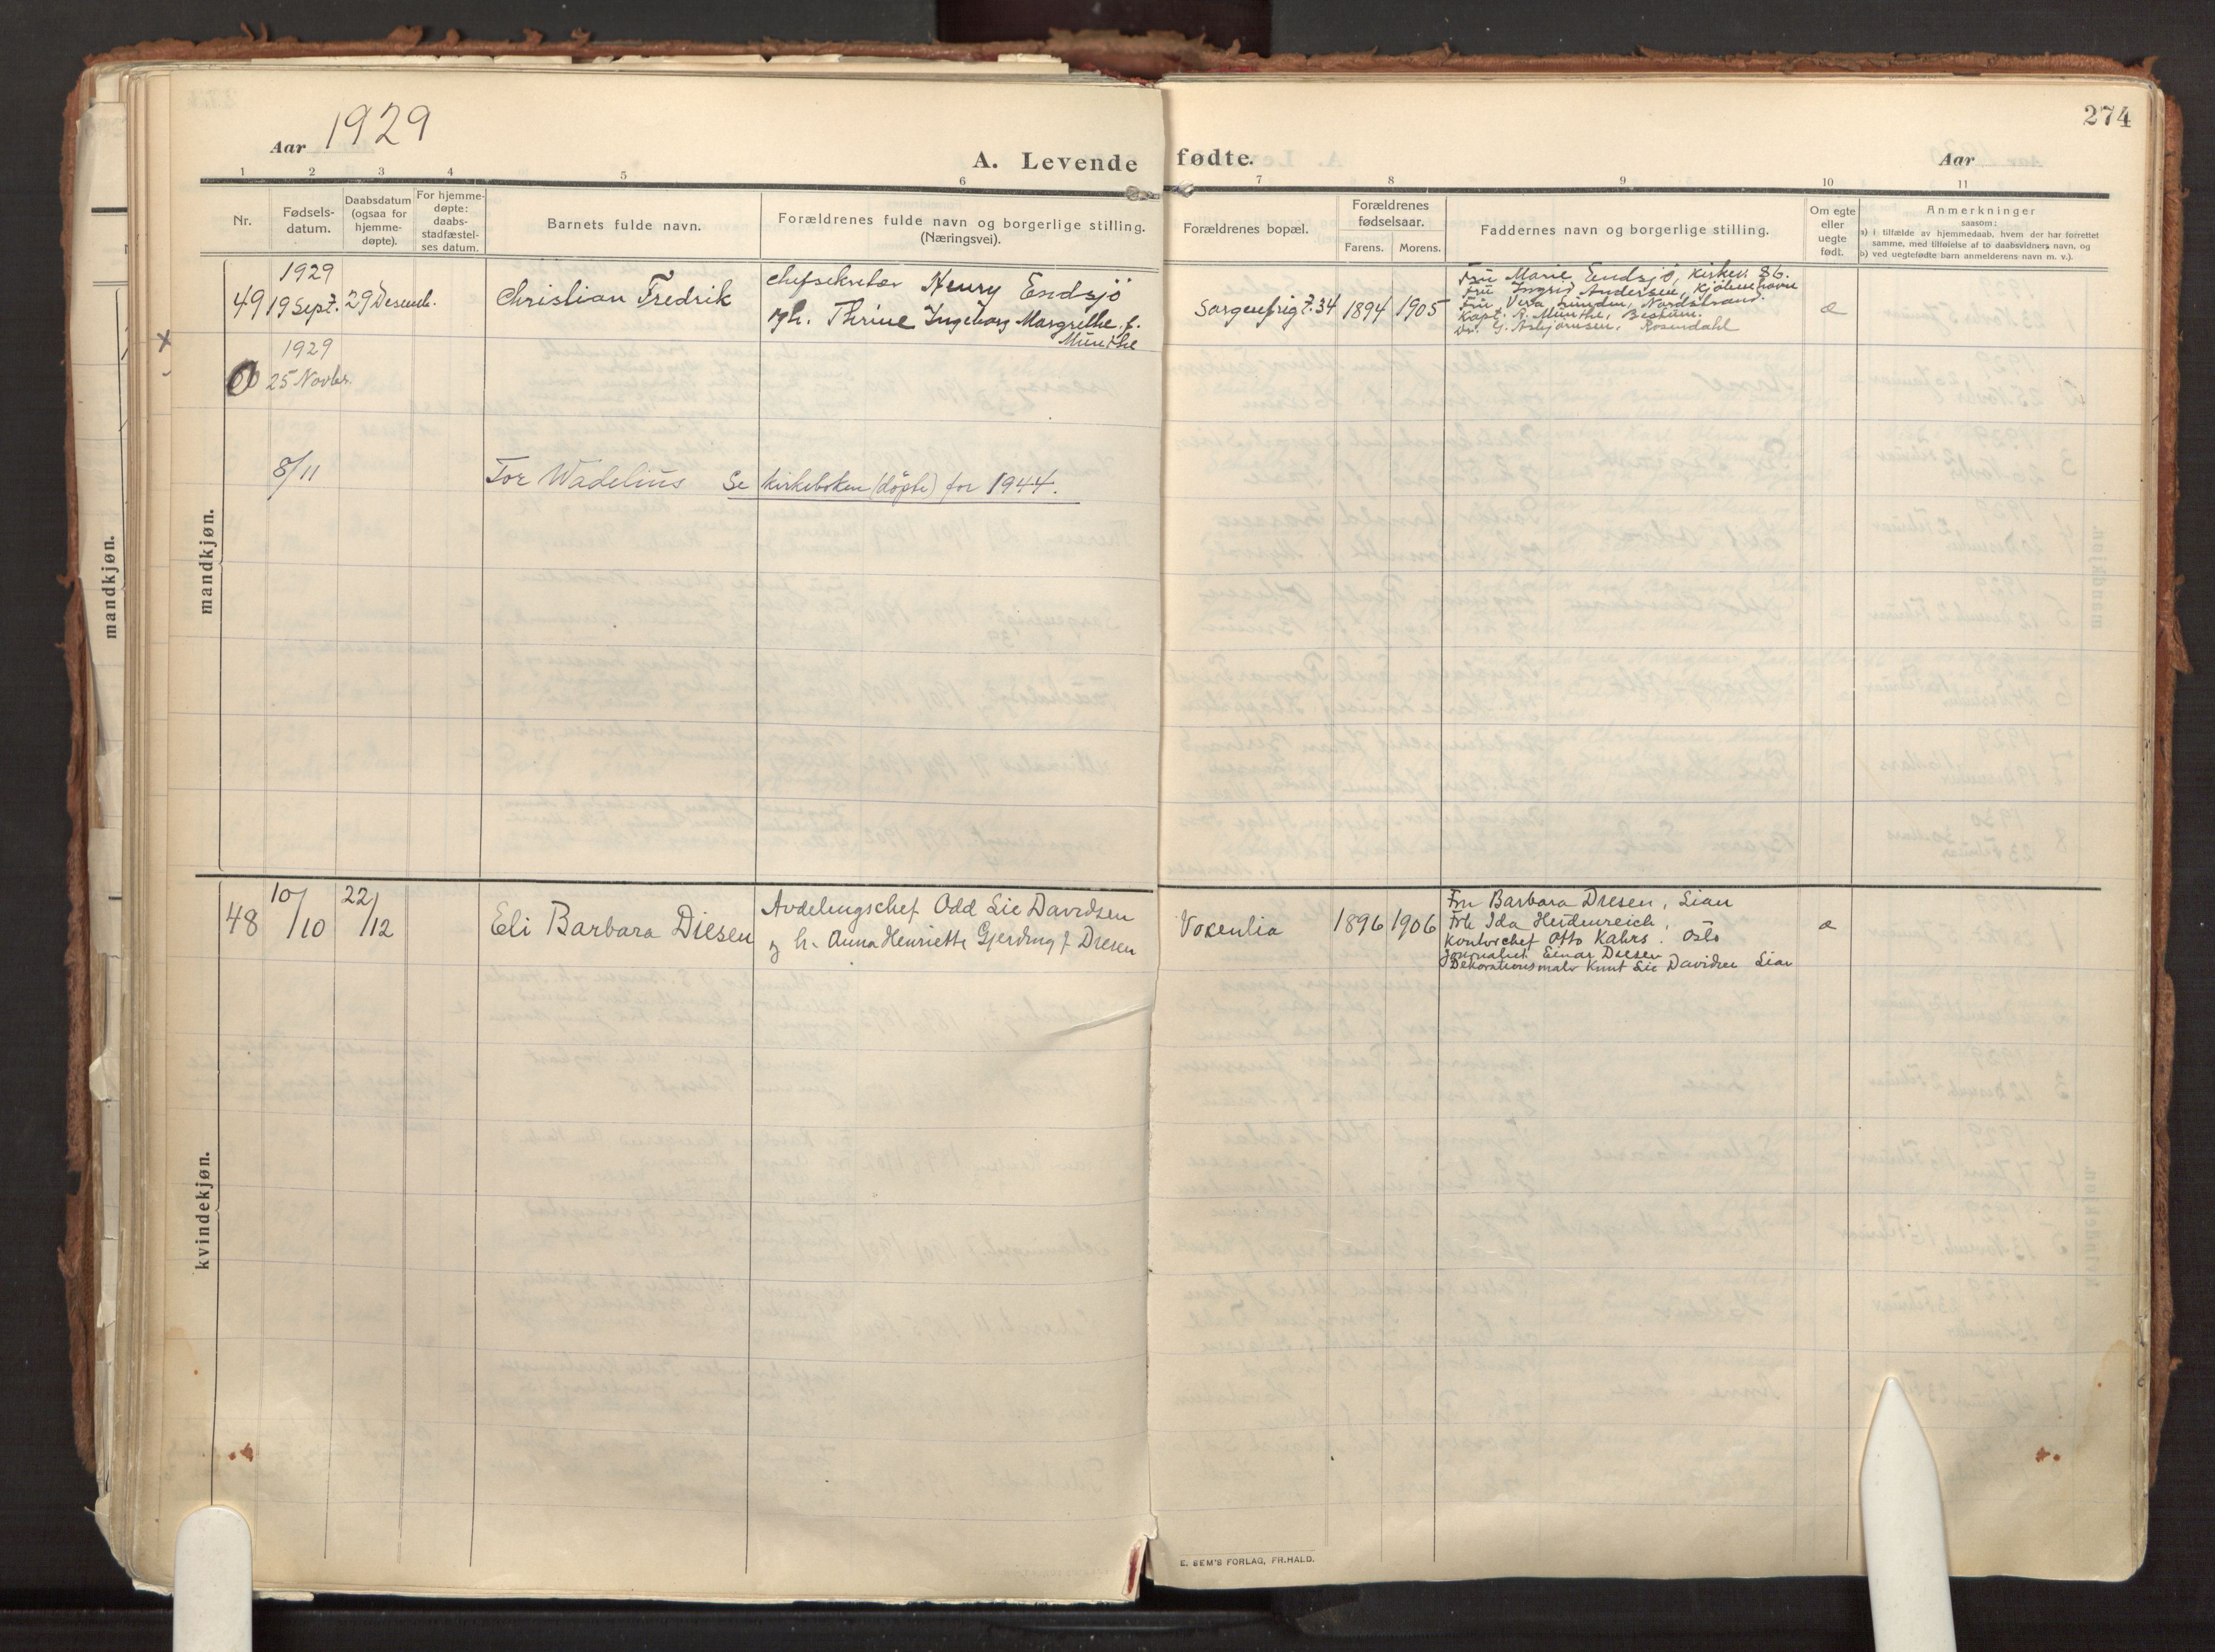 274
Aar 1929
A. Levende fødte.
Aar
1 2 3 4 5 6 7 8 9 10 11
Nr.
Fødsels-
datum.
Daabsdatum
(ogsaa for
hjemme-
døpte).
For hjemme-
døpte:
daabs-
stadfæstel-
ses datum.
Barnets fulde navn.
Forældrenes fulde navn og borgerlige stilling.
(Næringsvei).
Forældrenes bopæl.
Forældrenes
fødselsaar.
Farens. Morens.
Faddernes navn og borgerlige stilling.
Om egte
eller
uegte
født.
Anmerkninger
saasom:
a) i tilfælde av hjemmedaab, hvem der har forrettet
samme, med tilføielse af to daabsvidners navn, og
b) ved uegtefødte barn anmelderens navn m. v.).
mandkjøn.
mandkjøn.
49
1929
19 Sept.
29 Desemb.
Christian Fredrik
Chefsekretær Henry Endsjö
og h. Thrine Ingeborg Margrethe f.
Munthe
Sorgenfrigt. 34
1894 1905
Fru Marie Endsjö, Kirkev. 86.
Fru Ingrid Andersen, Kjöbenhavn
Fru Vera Lunden, Nordstrand.
Kapt. A. Munthe, Bestum.
Dr. G. Asbjörnsen, Rosendahl
e
x
1929
25 Novbr.
8/11
Tor Wadelius Se kirkeboken (döpte) for 1944.
kvindekjøn.
48
10/10
22/12
Eli Barbara Diesen
Avdelingschef Odd Lie Davidsen
og h. Anna Henriette Gjerdrug f. Diesen
Voxenlia
1896 1906
Fru Barbara Diesen, Lian
Frk Ida Heidenreich,
Kontorchef Otto Kahrs. Oslo
Journalist Einar Diesen
Dekorationsmaler Knut Lie Davidsen Lian
e
E. SEM'S FORLAG, FR.HALD.